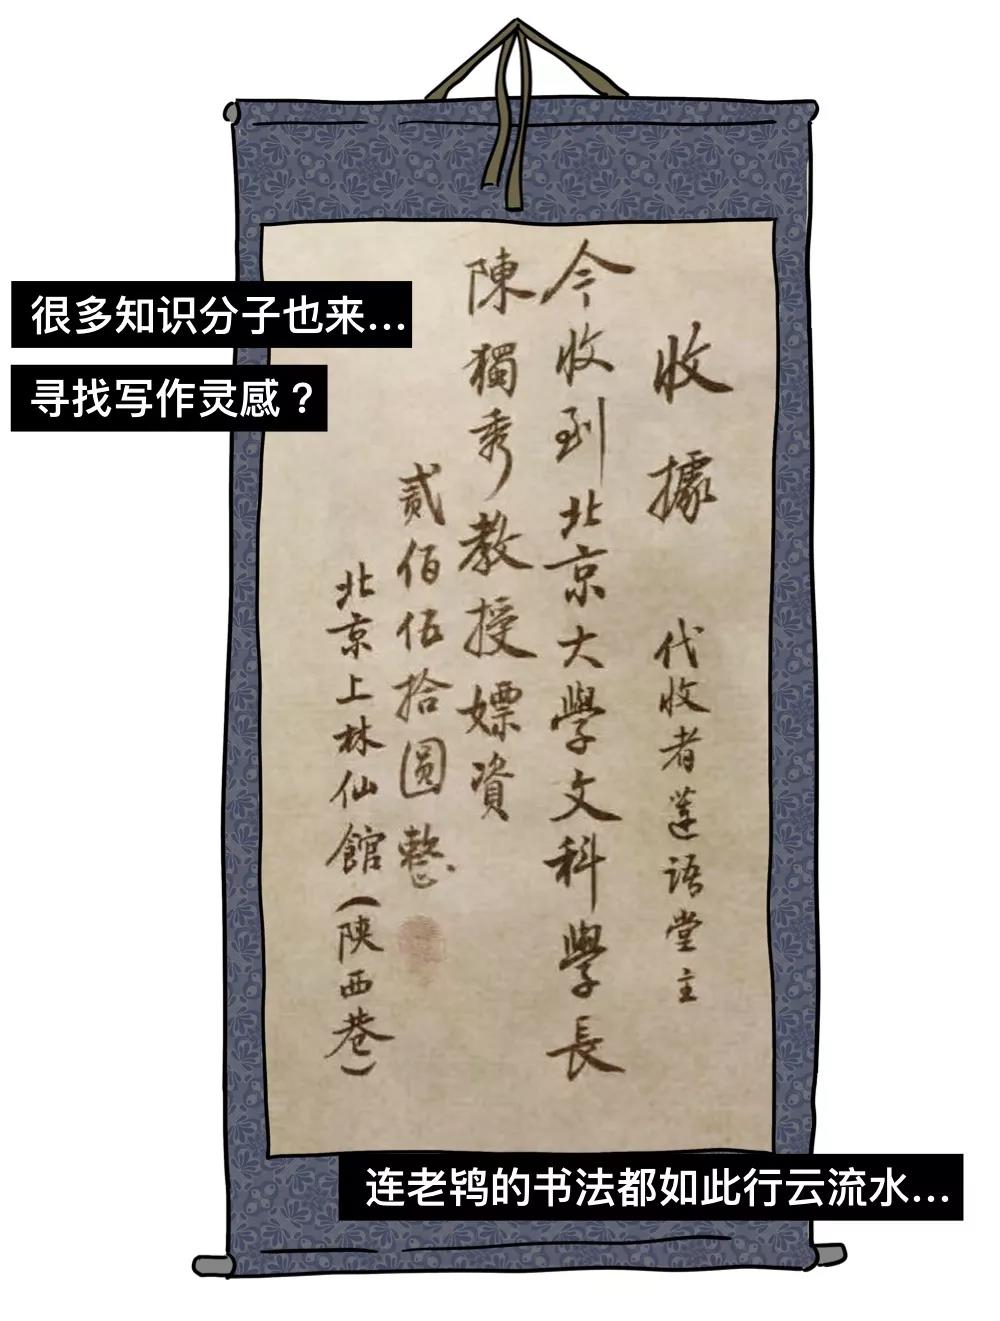 很多知识分子也来...
寻找写作灵感？
收據 代收者蓮语堂主
今收到北京大學文科學長
陳獨秀教授嫖資
贰佰伍拾圓整
北京上林仙館(陕西巷)
连老鸨的书法都如此行云流水...